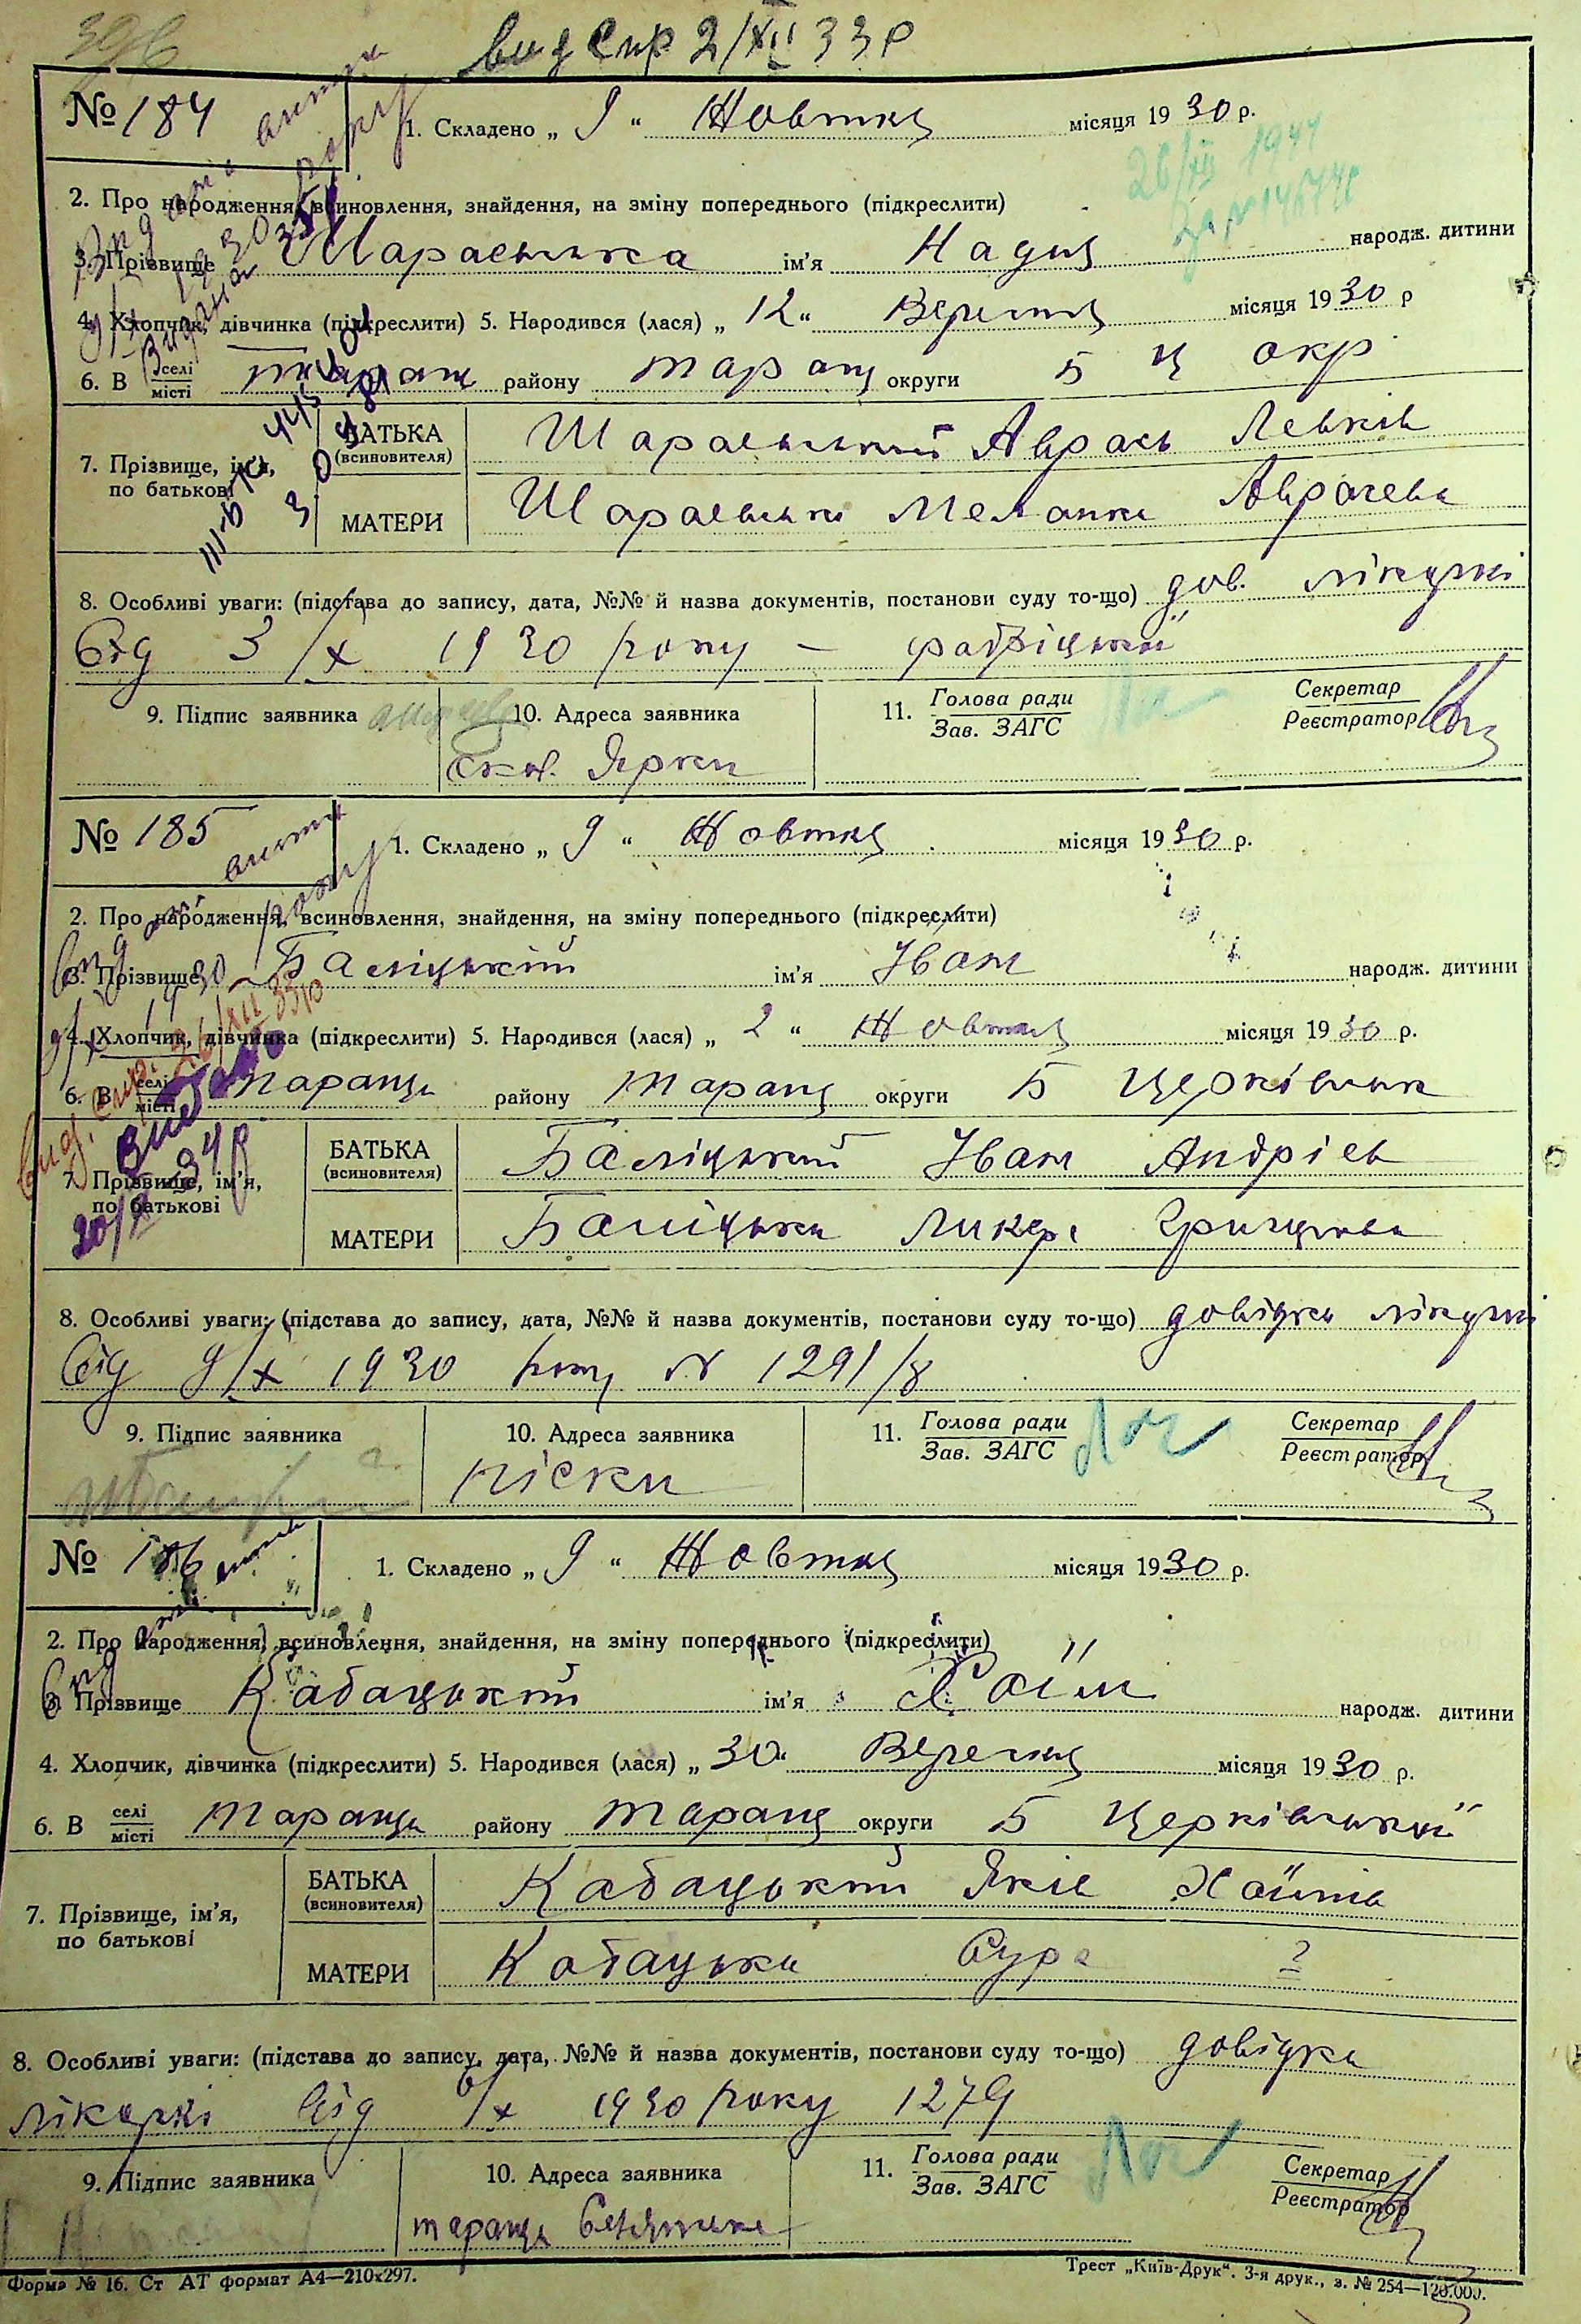 396
вид спр 2/XII 33 р
№ 184
1. Складено „ 9 “ Жовтня місяця 1930 р.
26/XII 1944
2. Про народження, всиновлення, знайдення, на зміну попереднього (підкреслити)
3. Прізвище Шараєвська ім'я Надія народж. дитини
4. Хлопчик, дівчинка (підкреслити) 5. Народився (лася) „ 12 “ Вересня місяця 1930 р
6. В селі/місті Таращі району Таращ округи Б Ц окр
7. Прізвище, ім'я, по батькові
БАТЬКА (всиновителя) Шараєвський Аврась Левків
МАТЕРИ Шараєвська Меланка
8. Особливі уваги: (підстава до запису, дата, №№ й назва документів, постанови суду то-що) дов. лікарні
від 3/X 1930 року –
9. Підпис заявника
10. Адреса заявника
11. Голова ради
Зав. ЗАГС
Секретар
Реєстратор
Ярки
№ 185
1. Складено „ 9 “ Жовтня місяця 1930 р.
2. Про народження, всиновлення, знайдення, на зміну попереднього (підкреслити)
3. Прізвище Баліцький ім'я Іван народж. дитини
4. Хлопчик, дівчинка (підкреслити) 5. Народився (лася) „ 2 “ Жовтня місяця 1930 р.
6. В селі/місті Таращі району Таращ округи Б Церківськ
7. Прізвище, ім'я, по батькові
БАТЬКА (всиновителя) Баліцький Іван Андріев
МАТЕРИ Баліцька Ликера Грицькова
8. Особливі уваги: (підстава до запису, дата, №№ й назва документів, постанови суду то-що) довідка лікарні
від 9/X 1930 року № 1291/8
9. Підпис заявника
10. Адреса заявника
11. Голова ради
Зав. ЗАГС
Секретар
Реєстратор
піски
№ 186
1. Складено „ 9 “ Жовтня місяця 1930 р.
2. Про народження, всиновлення, знайдення, на зміну попереднього (підкреслити)
3. Прізвище Кабацький ім'я Хаїм народж. дитини
4. Хлопчик, дівчинка (підкреслити) 5. Народився (лася) „ 30 “ Вересня місяця 1930 р.
6. В селі/місті Таращі району Таращ округи Б Церківський
7. Прізвище, ім'я, по батькові
БАТЬКА (всиновителя) Кабацький Яків Хаїмів
МАТЕРИ Кабацька Сура ?
8. Особливі уваги: (підстава до запису, дата, №№ й назва документів, постанови суду то-що) довідка
лікарні від 6/X 1930 року 1279
9. Підпис заявника
10. Адреса заявника
11. Голова ради
Зав. ЗАГС
Секретар
Реєстратор
тараща
Форма № 16. Ст АТ формат А4—210х297.
Трест „Київ-Друк“. 3-я друк., з. № 254—120.000.